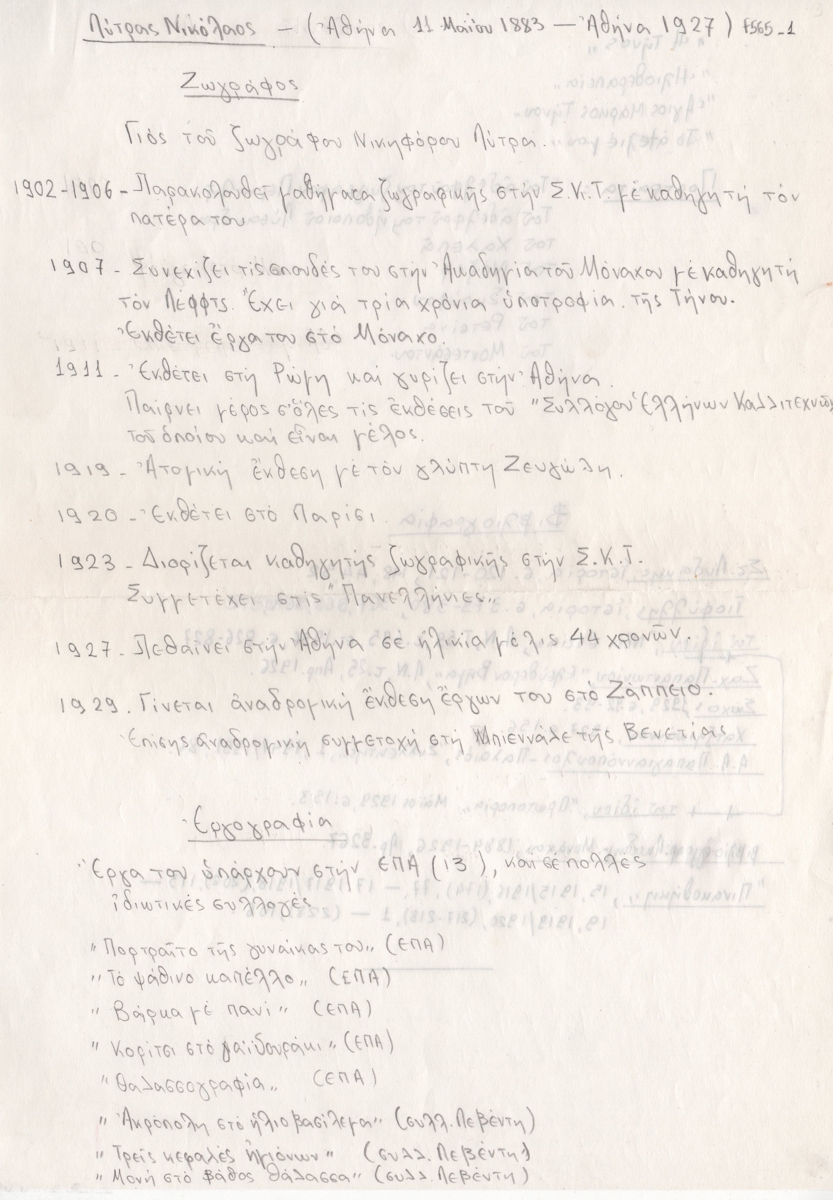 Λύτρας Νικόλαος - (Ἀθήνα 11 Μαΐου 1883 — Ἀθήνα 1927) f565-1
Ζωγράφος
Γιός τοῦ ζωγράφου Νικηφόρου Λύτρα.
1902-1906 - Παρακολουθεῖ μαθήματα ζωγραφικῆς στήν Σ.Κ.Τ. μέ καθηγητή τόν
πατέρα του
1907 - Συνεχίζει τίς σπουδές του στήν Ἀκαδημία τοῦ Μόναχου μέ καθηγητή
τόν Λέφφτς. Ἔχει γιά τρία χρόνια ὑποτροφία τῆς Τήνου.
Ἐκθέτει ἔργα του στό Μόναχο.
1911 - Ἐκθέτει στή Ρώμη καί γυρίζει στήν Ἀθήνα.
Παίρνει μέρος σ' ὅλες τίς ἐκθέσεις τοῦ "Συλλόγου Ἑλλήνων Καλλιτεχνῶν"
τοῦ ὁποίου καί εἶναι μέλος.
1919 - Ἀτομική ἔκθεση μέ τόν γλύπτη Ζευγώλη.
1920 - Ἐκθέτει στό Παρίσι
1923 - Διορίζεται καθηγητής ζωγραφικῆς στήν Σ.Κ.Τ.
Συμμετέχει στίς "Πανελλήνιες"
1927 - Πεθαίνει στήν Ἀθήνα σέ ἡλικία μέλις 44 χρονῶν.
1929. Γίνεται ἀναδρομική ἔκθεση ἔργων του στό Ζάππειο.
Ἐπίσης ἀναδρομική συμμετοχή στή Μπιεννάλε τῆς Βενετίας
Ἐργογραφία
Ἔργα του ὑπάρχουν στήν ΕΠΑ (13), καί σέ πολλές
ἰδιωτικές συλλογές
"Πορτραῖτο τῆς γυναίκας του" (ΕΠΑ)
"Τό ψάθινο καπέλλο" (ΕΠΑ)
"Βάρκα μέ πανί" (ΕΠΑ)
"Κορίτσι στό γαϊδουράκι" (ΕΠΑ)
"Θαλασσογραφία" (ΕΠΑ)
"Ἀκρόπολη στό ἡλιοβασίλεμα" (συλλ. Λεβέντη)
"Τρεῖς κεφαλές ἡμιόνων" (συλλ. Λεβέντη)
"Μονή στό βάθος θάλασσα" (συλλ. Λεβέντη)